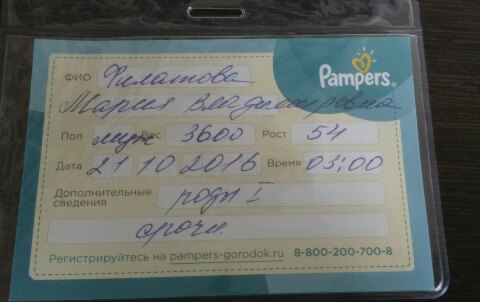 Pampers®
ФИО Филатова
Мария Владимировна
Пол муж Вес 3600 Рост 54
Дата 21 10 2016 Время 03:00
Дополнительные сведения роды I
срочн.
Регистрируйтесь на pampers-gorodok.ru 8-800-200-700-8